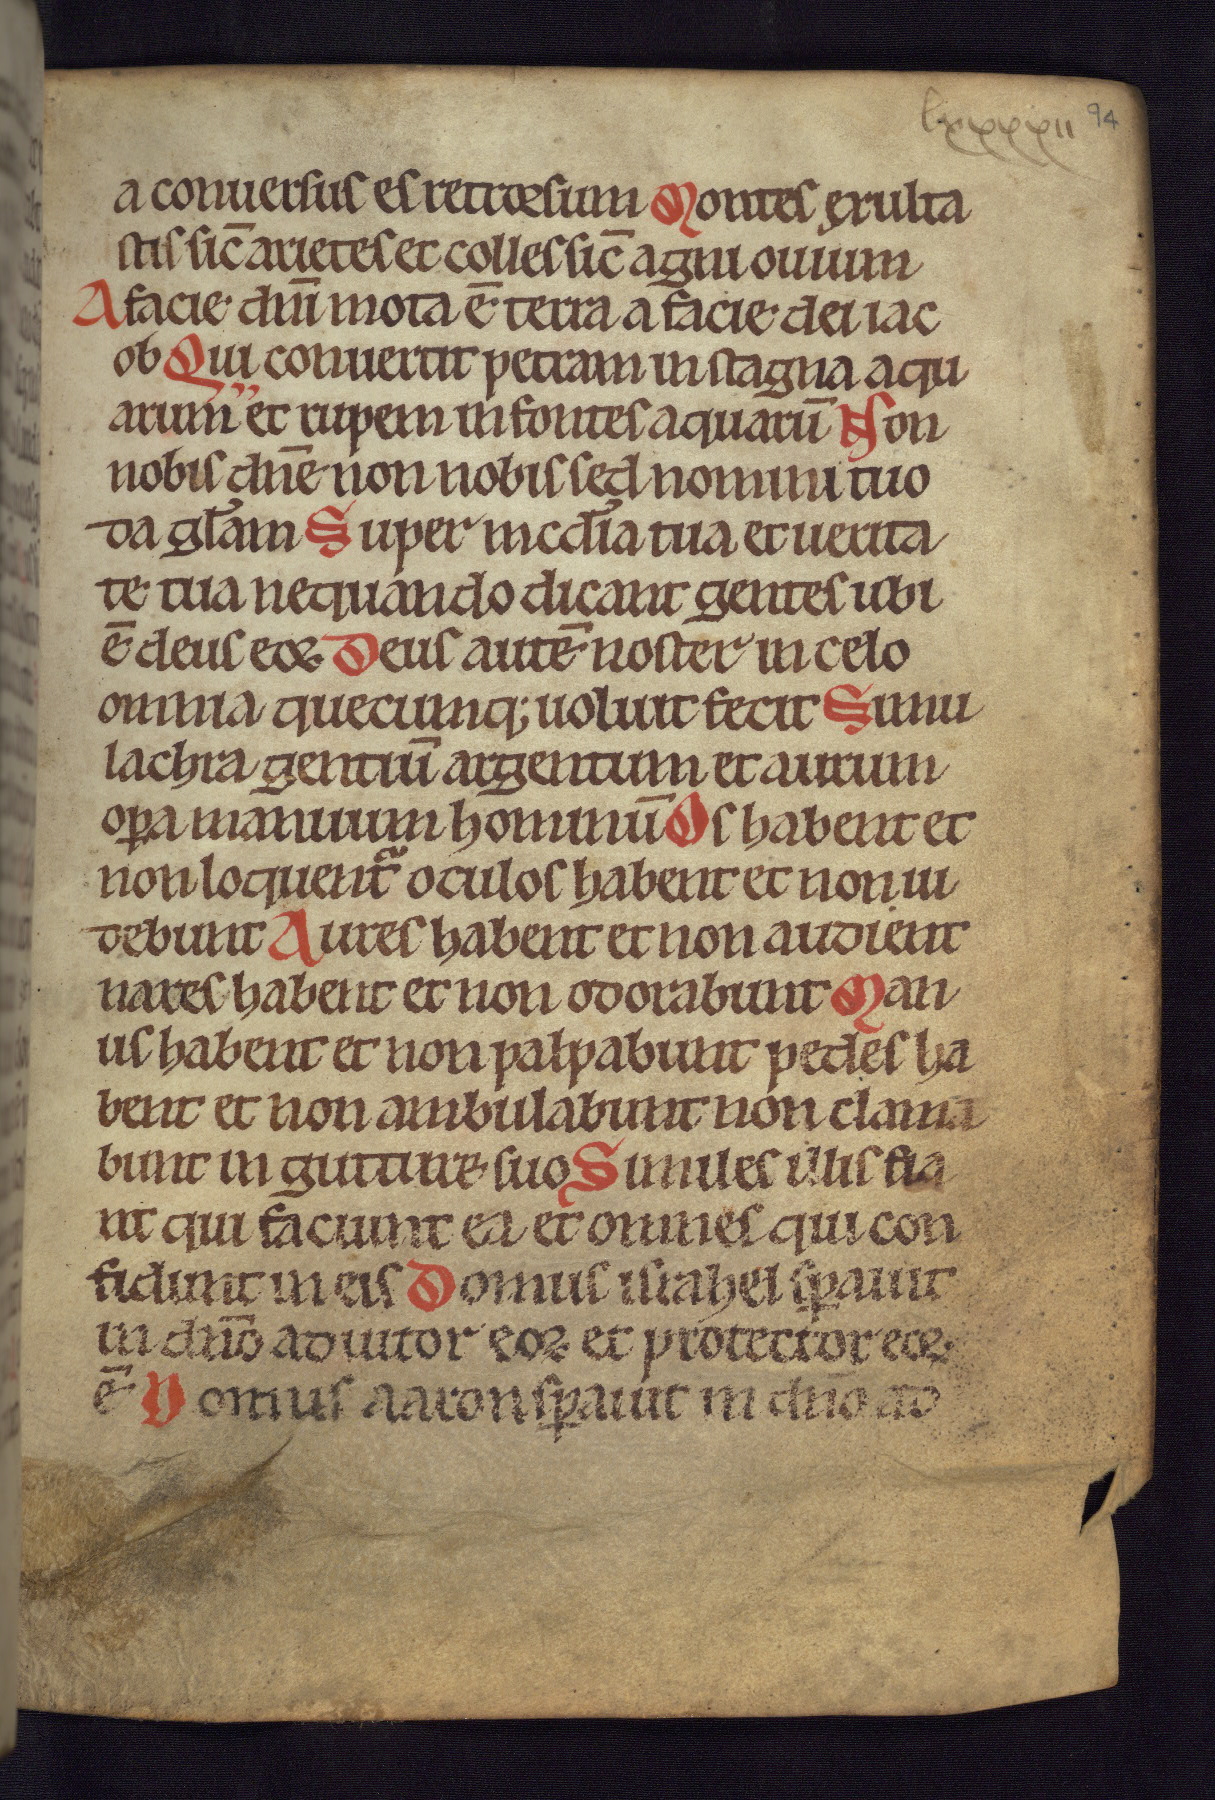 lxxxxii 94
a conuersus es retrorsum Montes exulta
stis sic̄ arietes et colles sic̄ agni ouium
A facie dn̄i mota ē terra a facie dei iac
ob Qui conuertit petram in stagna aqu
arum et rupem in fontes aquarū Non
nobis dn̄e non nobis sed nomini tuo
da gl̄am Super mcd̄ia tua et uerita
te tua nequando dicant gentes ubi
ē deus eoꝝ Deus autē noster in celo
omnia quecumq; uoluit fecit Simu
lachra gentiū argentum et aurum
oꝑa manuum hominū Os habent et
non loquent̃ oculos habent et non ui
debunt Aures habent et non audient
nares habent et non odorabunt Man
us habent et non palpabunt pedes ha
bent et non ambulabunt non clama
bunt in gutture suo Similes illis fia
nt qui faciunt ea et omnes qui con
fidunt in eis Domus israhel sꝑauit
in dn̄o adiutor eoꝝ et protector eoꝝ
ē Domus aaron sꝑauit in dn̄o ad